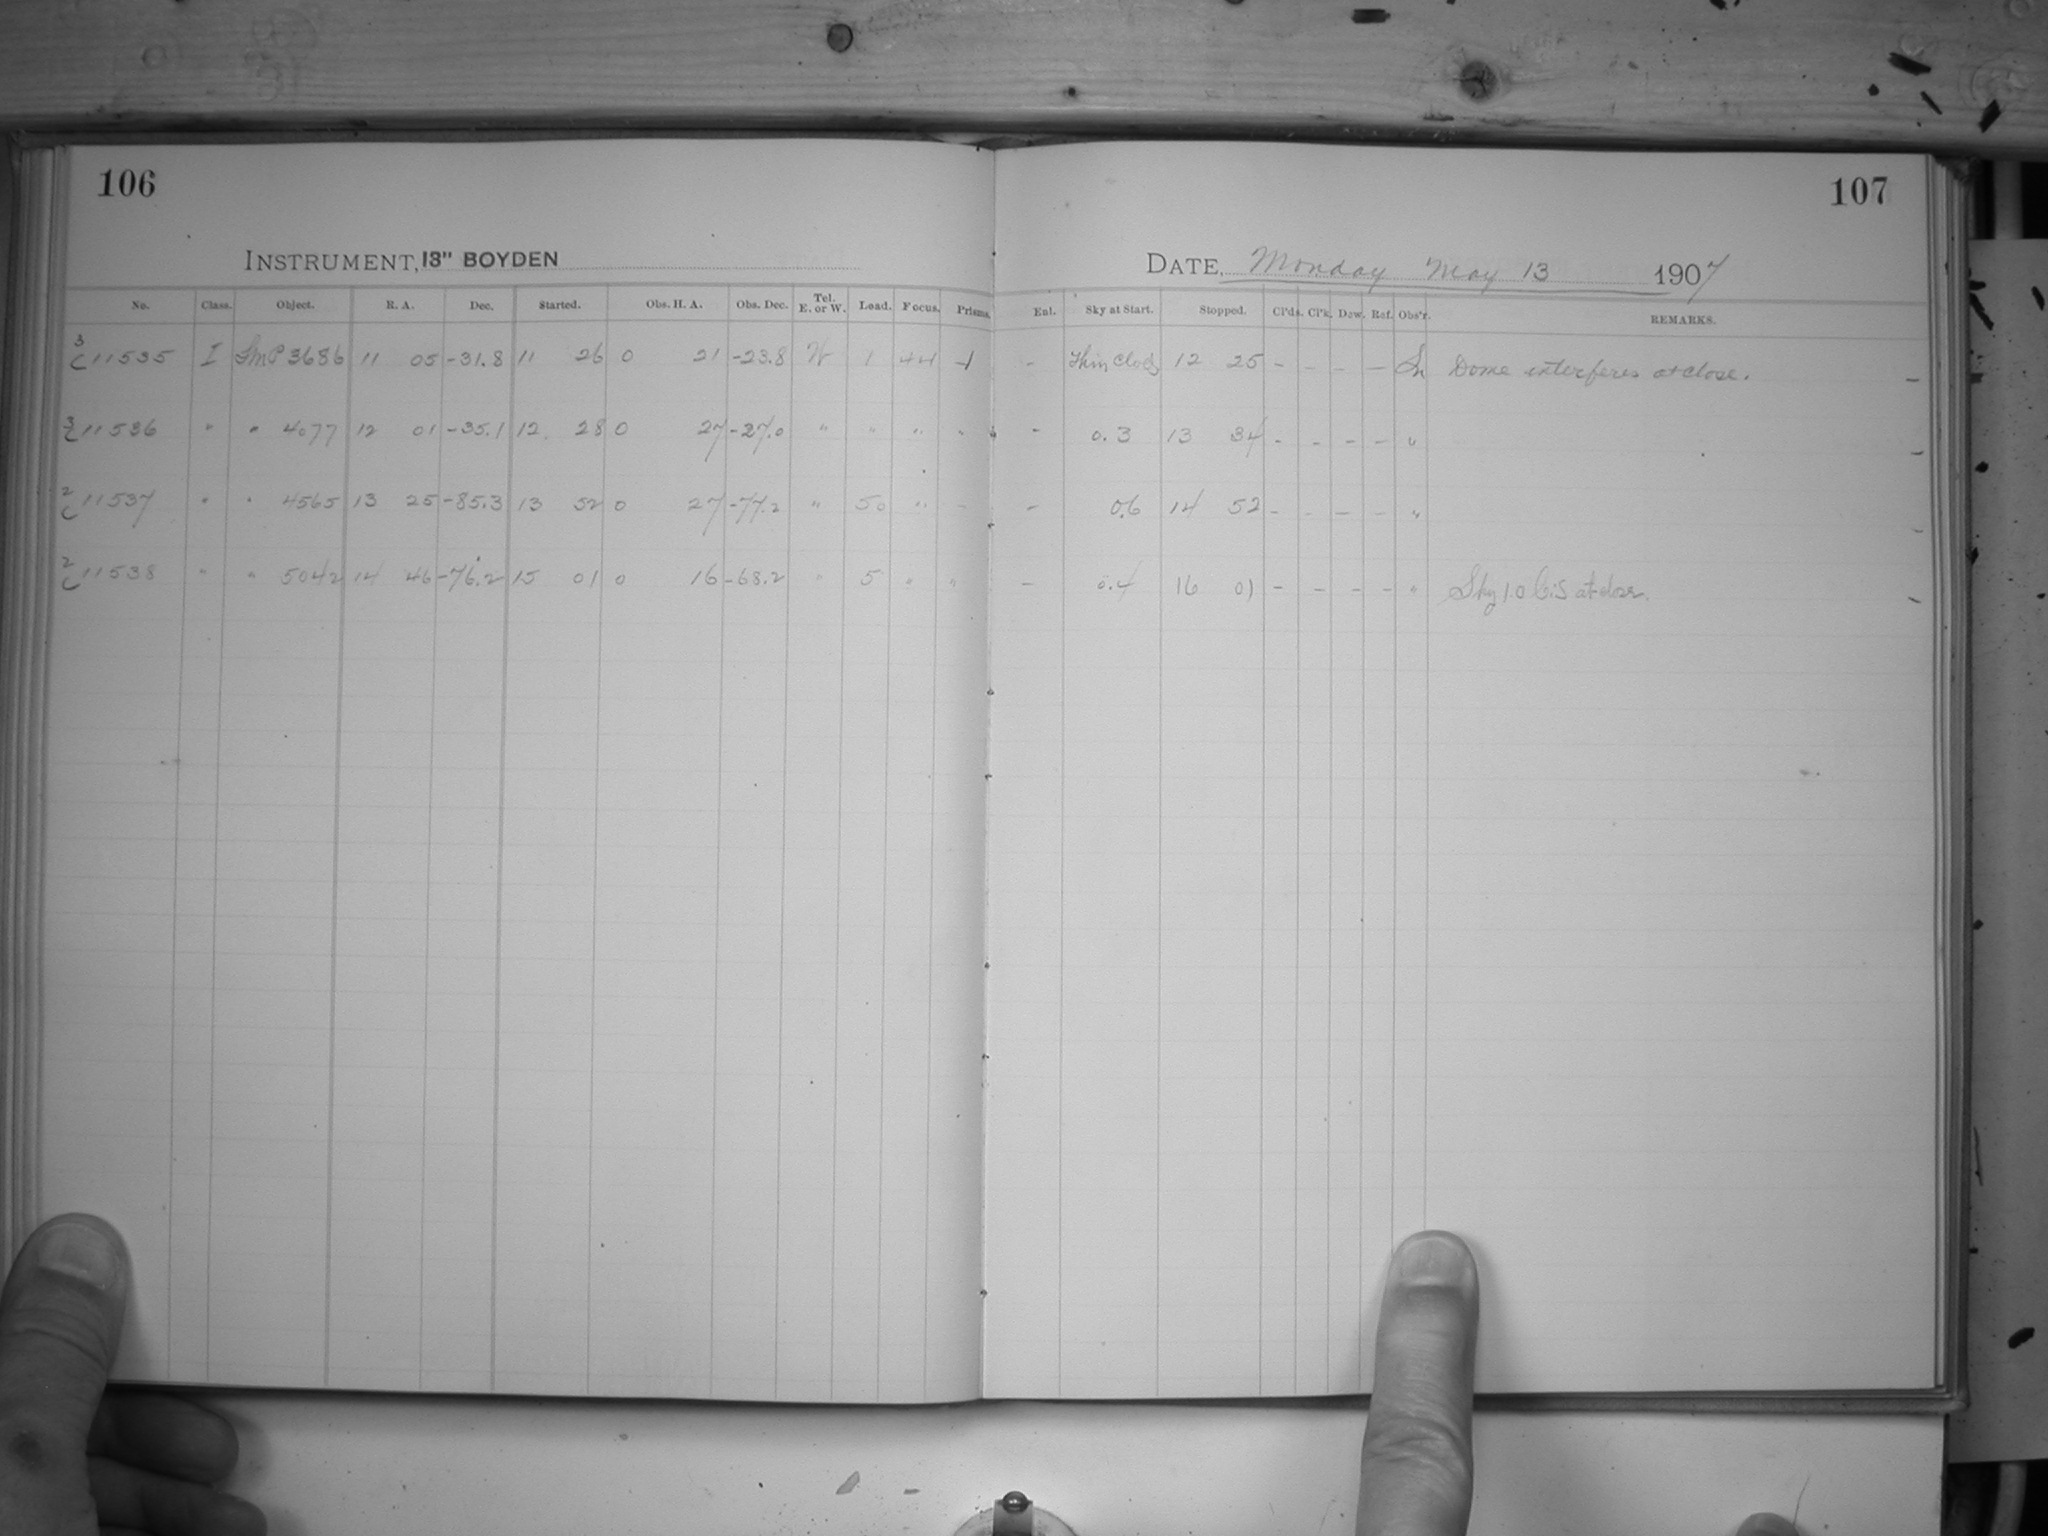 106
107
INSTRUMENT, 13" BOYDEN
DATE, Monday May 13 1907
No. Class. Object. R. A. Dec. Started. Obs. H. A. Obs. Dec. Tel. E. or W. Load. Focus. Prisms. Ent. Sky at Start. Stopped. Cl'ds. Cl'k. Dew. Ref. Obs'r. REMARKS.
3 C 11535 I SmP 3686 11 05 -31.8 11 26 0 21 -23.8 W 1 44 -1 - Thin Clods 12 25 - - - - Sn Dome interferes at close. -
3 C 11536 " " 4077 12 01 -35.1 12 28 0 27 -27.0 " " " " - 0.3 13 34 - - - - " -
2 C 11537 " " 4565 13 25 -85.3 13 52 0 27 -77.2 " 50 " - - 0.6 14 52 - - - - " -
2 C 11538 " " 5042 14 46 -76.2 15 01 0 16 -68.2 " 5 " " - 0.4 16 01 - - - - " Sky 1.0 at close. -